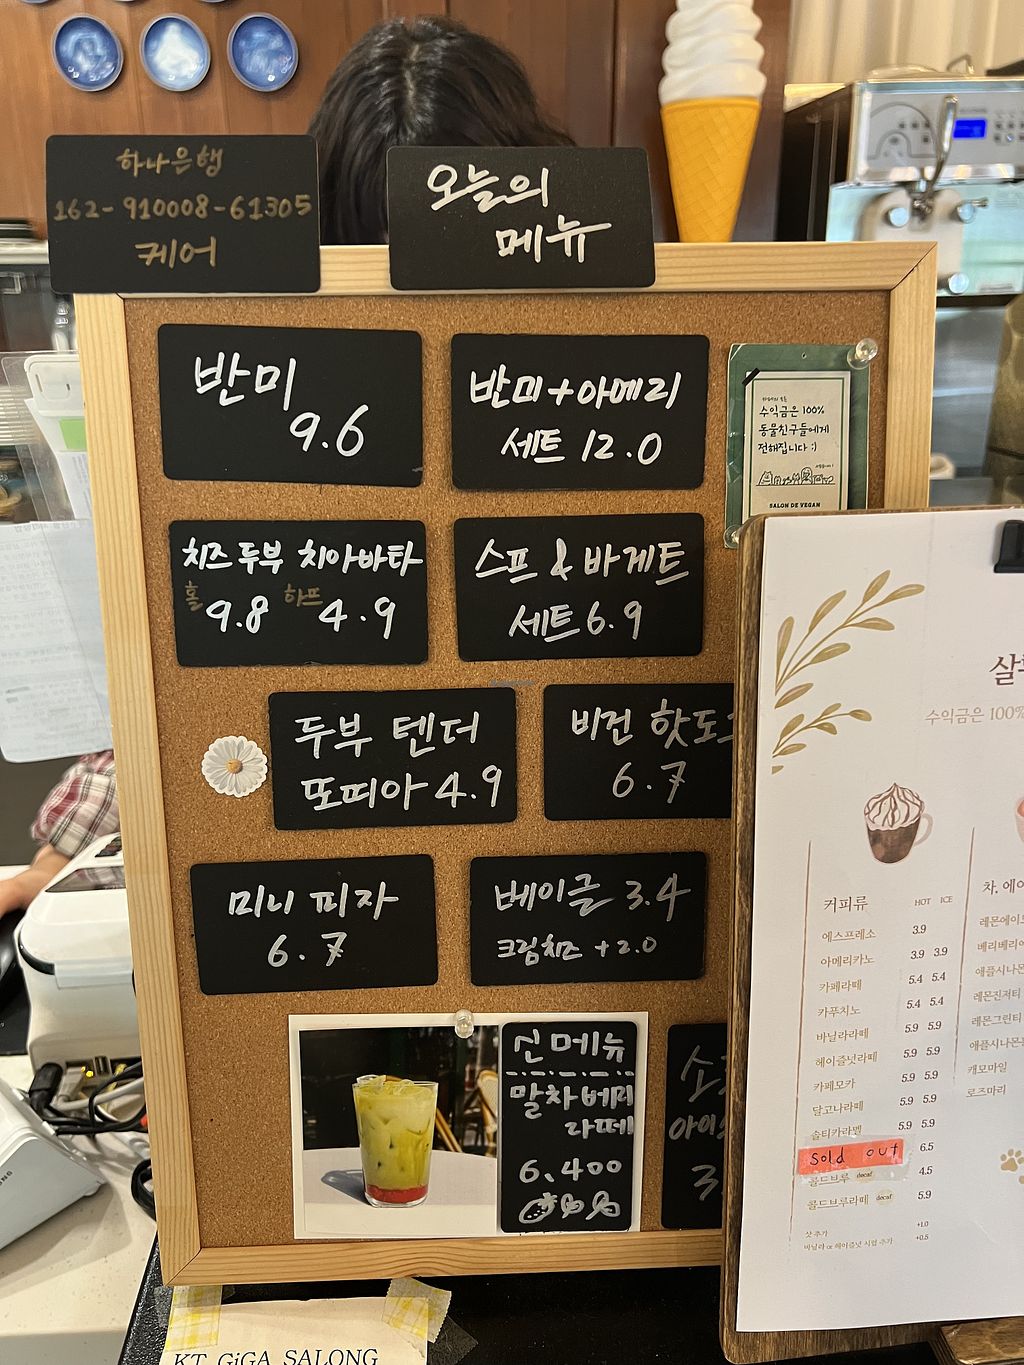 하나은행
162-910008-61305
케어
오늘의
메뉴
반미
9.6
반미+아메리
세트 12.0
수익금은 100%
동물친구들에게
전해집니다 :)
SALON DE VEGAN
치즈두부 치아바타
홀 9.8 하프 4.9
스프 & 바게트
세트 6.9
두부 텐더
또띠아 4.9
비건 핫도
6.7
미니 피자
6.7
베이글 3.4
크림치즈 +2.0
신메뉴
말차베리
라떼
6.400
아이
3
수익금은 100%
커피류 HOT ICE
에스프레소 3.9
아메리카노 3.9 3.9
카페라떼 5.4 5.4
카푸치노 5.4 5.4
바닐라라떼 5.9 5.9
헤이즐넛라떼 5.9 5.9
카페모카 5.9 5.9
달고나라떼 5.9 5.9
솔티카라멜 5.9 5.9
Sold out 6.5
콜드브루 decaf 4.5
콜드브루라떼 decaf 5.9
샷추가 +1.0
바닐라 or 헤이즐넛 시럽 추가 +0.5
차, 에이
레몬에이
베리베리
애플시나몬
레몬진저티
레몬그린티
애플시나몬
캐모마일
로즈마리
KT GiGA SALONG